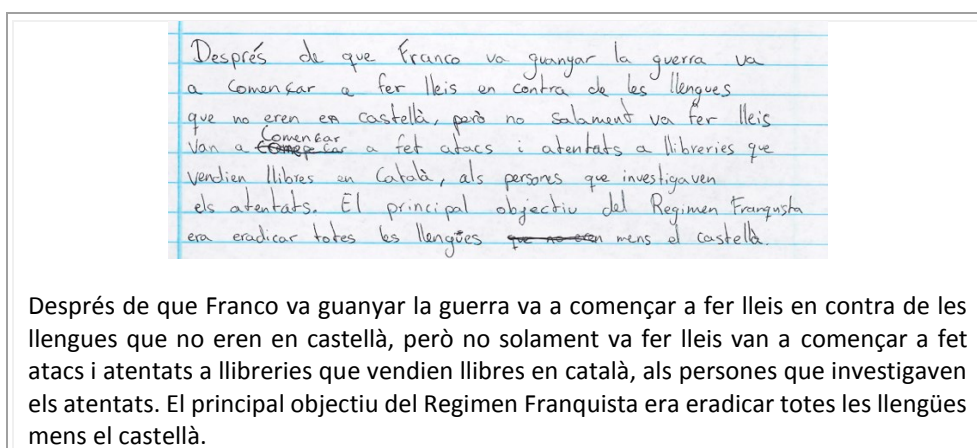 Després de que Franco va guanyar la guerra va
a començar a fer lleis en contra de les llengues
que no eren en castellà, però no salament va fer lleis
Van a començar a fet atacs i atentats a llibreries que
vendien llibres en Català, als persones que investigaven
els atentats. El principal objectiu del Regimen Franquista
era eradicar totes les llengües que no eren mens el castellà.
Després de que Franco va guanyar la guerra va a començar a fer lleis en contra de les
llengues que no eren en castellà, però no solament va fer lleis van a començar a fet
atacs i atentats a llibreries que vendien llibres en català, als persones que investigaven
els atentats. El principal objectiu del Regimen Franquista era eradicar totes les llengües
mens el castellà.